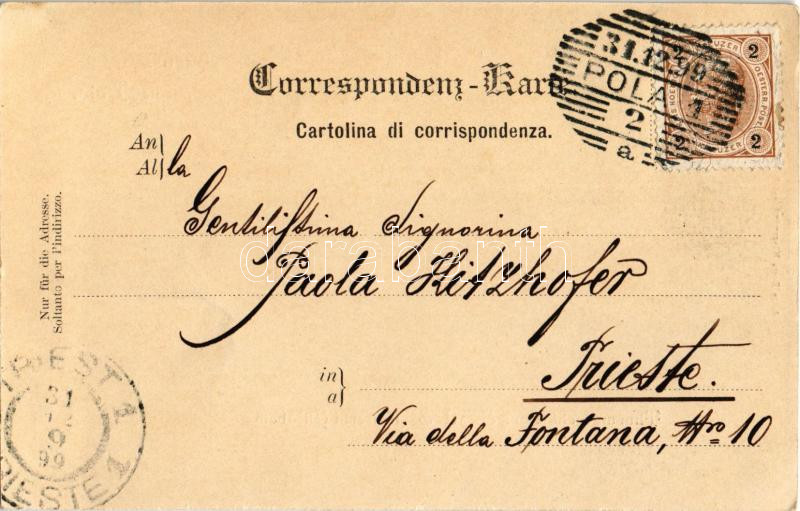 Correspondenz-Kar
Cartolina di corrispondenza.
31.12.99
POLA 1
2
a
2 2
2 2
KREUZER
OESTERR. POST.
An
Al la
Gentilissima Signorina
Paola Kitzhofer
in
a
Trieste.
Via della Fontana, Nro 10
Nur für die Adresse.
Soltanto per l'indirizzo.
TRIEST 1
31
12
9
99
TRIESTE 1
darabanth